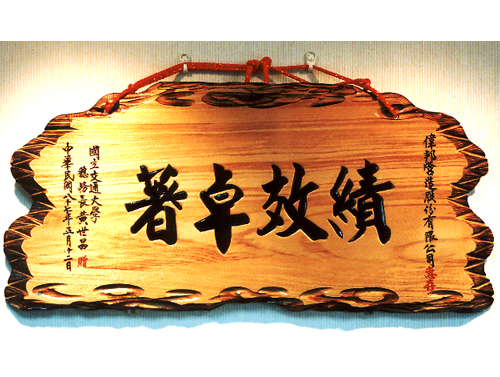 偉邦營造股份有限公司惠存
績效卓著
國立交通大學
總務長黃世昌贈
中華民國八十七年五月十二日